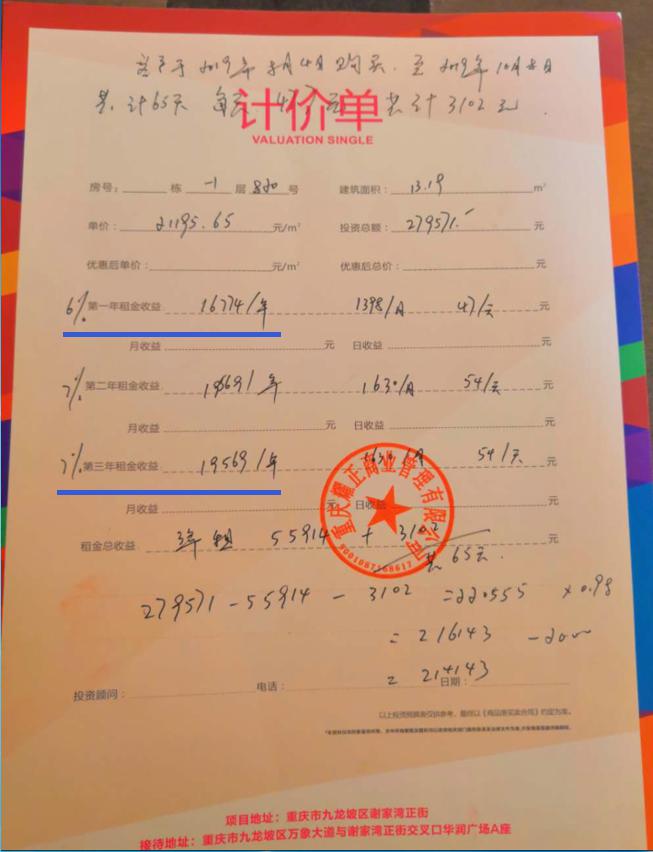 客户于2019年8月4日购买.至2019年10月8日
共计65天 每天47元 共计3102元.
计价单
VALUATION SINGLE
房号: 栋 -1 层 820 号 建筑面积: 13.19 m²
单价: 21195.65 元/m² 投资总额: 279571.- 元
优惠后单价: 元/m² 优惠后总价: 元
6% 第一年租金收益 16774/年 1398/月 47/天 元
月收益 元 日收益 元
7% 第二年租金收益 19569/年 1630/月 54/天 元
月收益 元 日收益 元
7% 第三年租金收益 19569/年 1630/月 54/天 元
月收益 元 日收益 元
重庆耀正商业管理有限公司
5001087168617
租金总收益 3年租 55914 + 3102 元
共65天.
279571-55914-3102=220555 x0.98
=216143 -2000
=214143
投资顾问: 电话: 日期:
以上投资预算表仅供参考,最终以《商品房买卖合同》约定为准。
项目地址:重庆市九龙坡区谢家湾正街
接待地址:重庆市九龙坡区万象大道与谢家湾正街交叉口华润广场A座